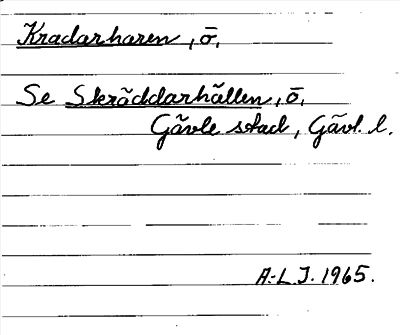 Kradarharen, ö,
Se Skräddarhällen, ö,
Gävle stad, Gävl. l.
A.-L. J. 1965.